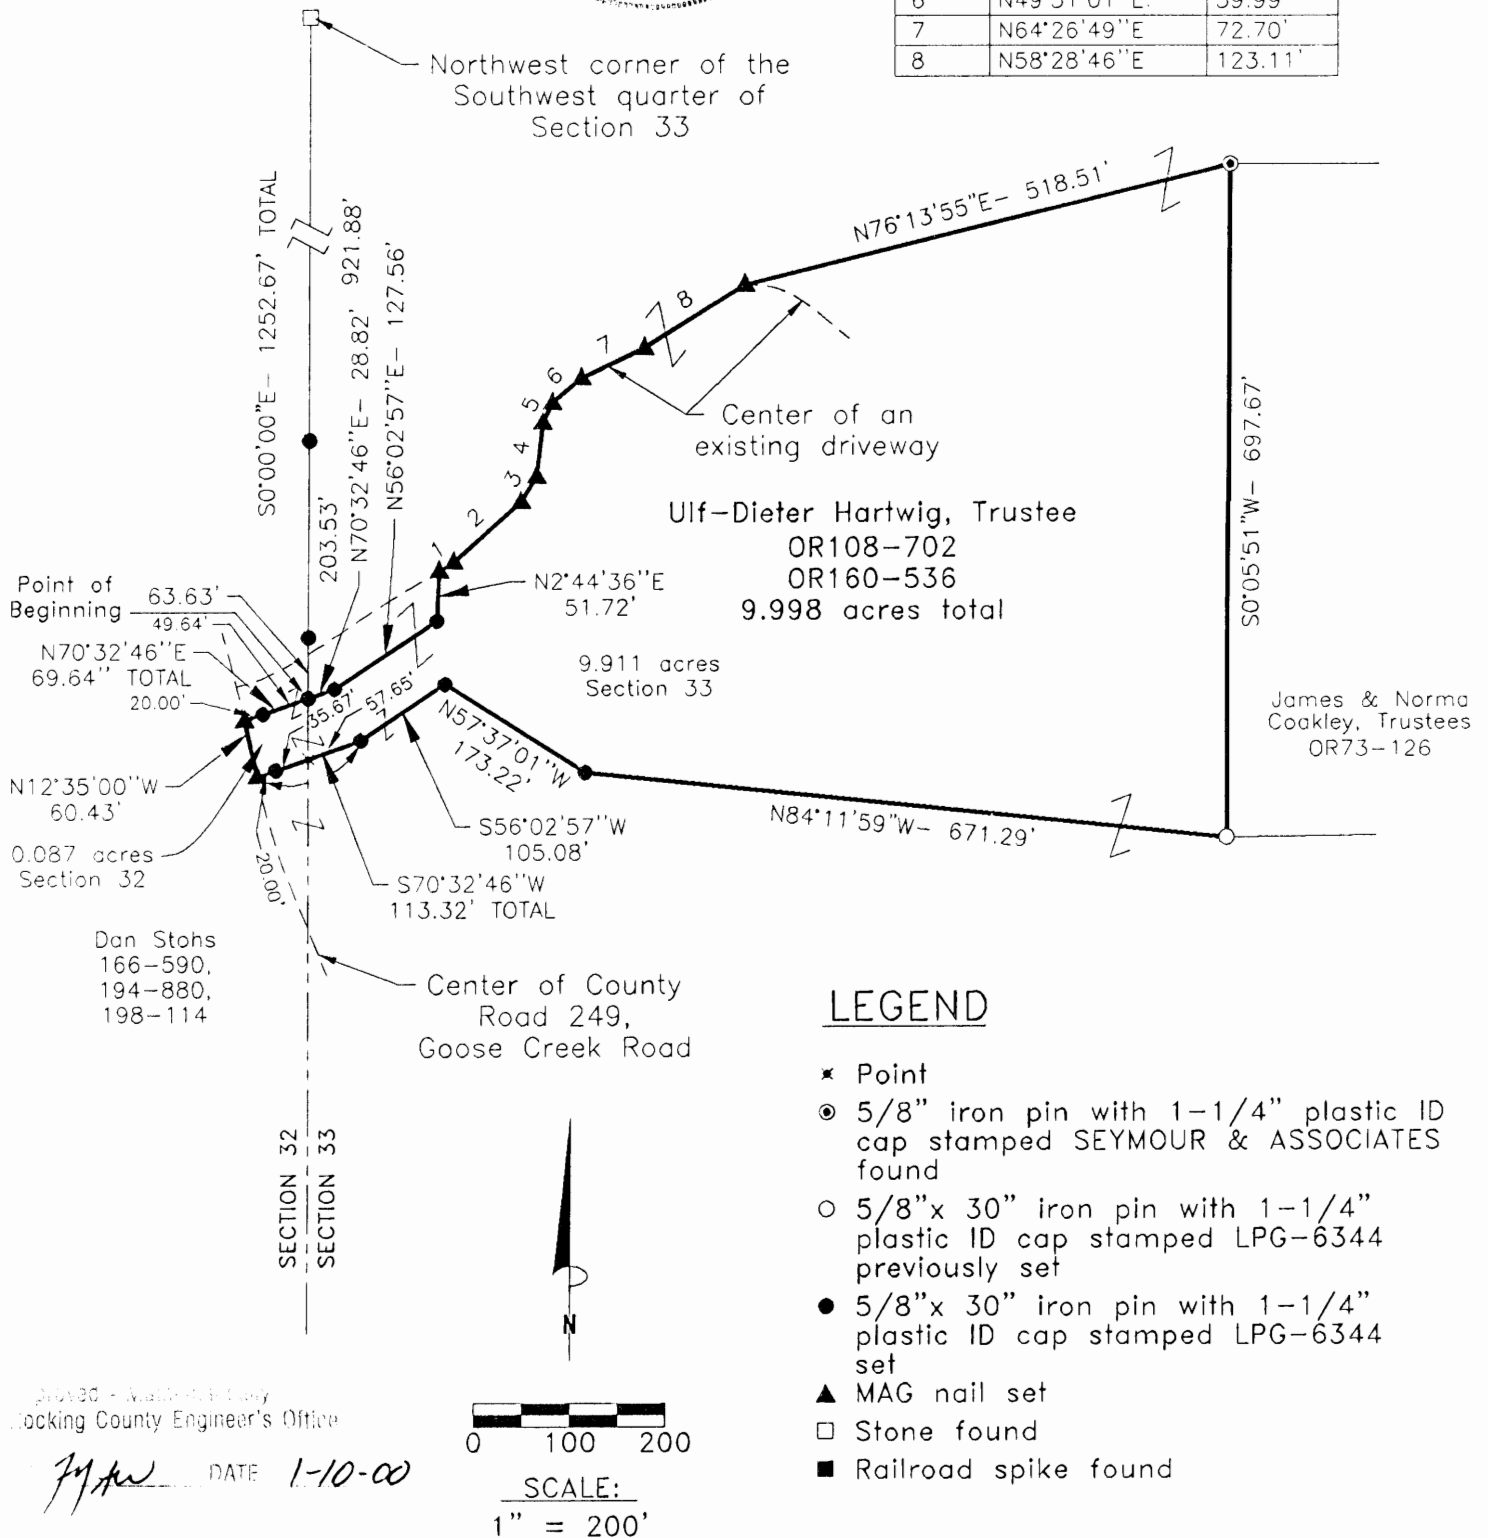 6 N49°51'01"E. 39.99'
7 N64°26'49"E 72.70'
8 N58°28'46"E 123.11'
Northwest corner of the
Southwest quarter of
Section 33
S0°00'00"E– 1252.67' TOTAL
921.88'
203.53'
N70°32'46"E– 28.82'
N56°02'57"E– 127.56'
N76°13'55"E– 518.51'
1
2
3
4
5
6
7
8
Center of an
existing driveway
Ulf–Dieter Hartwig, Trustee
OR108–702
OR160–536
9.998 acres total
9.911 acres
Section 33
S0°05'51"W– 697.67'
James & Norma
Coakley, Trustees
OR73–126
N2°44'36"E
51.72'
Point of
Beginning
63.63'
49.64'
N70°32'46"E
69.64" TOTAL
20.00'
35.67'
57.65'
N57°37'01"W
173.22'
N84°11'59"W– 671.29'
N12°35'00"W
60.43'
0.087 acres
Section 32
20.00'
S56°02'57"W
105.08'
S70°32'46"W
113.32' TOTAL
Dan Stohs
166–590,
194–880,
198–114
Center of County
Road 249,
Goose Creek Road
SECTION 32
SECTION 33
N
LEGEND
Point
5/8" iron pin with 1–1/4" plastic ID
cap stamped SEYMOUR & ASSOCIATES
found
5/8"x 30" iron pin with 1–1/4"
plastic ID cap stamped LPG–6344
previously set
5/8"x 30" iron pin with 1–1/4"
plastic ID cap stamped LPG–6344
set
MAG nail set
Stone found
Railroad spike found
ocking County Engineer's Office
DATE 1-10-00
0 100 200
SCALE:
1" = 200'